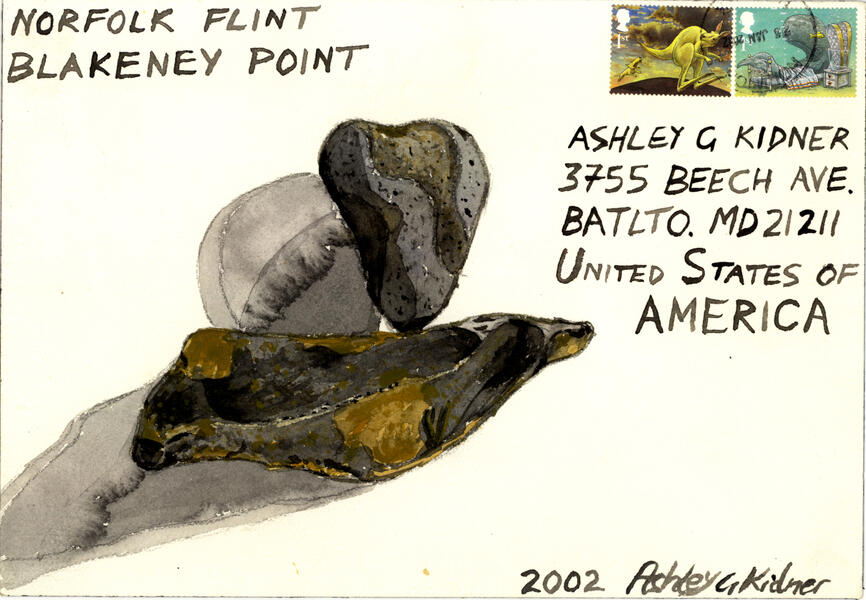 NORFOLK FLINT
BLAKENEY POINT
1ST
ASHLEY G KIDNER
3755 BEECH AVE.
BATLTO. MD 21211
UNITED STATES OF
AMERICA
2002 Ashley G Kidner